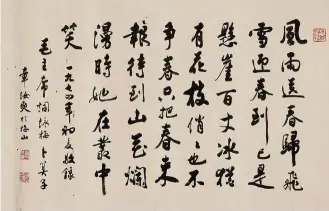 風雨送春歸飛
雪迎春到已是
懸崖百丈冰猶
有花枝俏〻也不
争春只把春來
報待到山花爛
漫時她在叢中
笑 一九七四年初夏敬錄
毛主席詞詠梅 卜算子
章汝奭